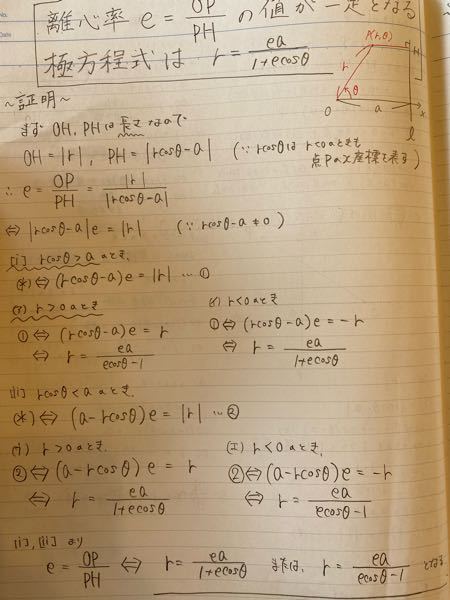 No.
Date
離心率 e = OP/PH の値が一定となる
極方程式は r = ea/(1+ecosθ)
P(r,θ)
H
r
θ
O
a
x
l
~証明~
まず OH, PHは長さなので
OH=|r|, PH=|rcosθ-a| (∵ rcosθは r<0のときも
点Pのx座標を表す)
∴ e = OP/PH = |r|/|rcosθ-a|
⇔ |rcosθ-a|e = |r| (∵ rcosθ-a≠0)
[i] rcosθ>a のとき、
(*)⇔ (rcosθ-a)e = |r| … ①
(ア) r>0のとき
①⇔ (rcosθ-a)e = r
⇔ r = ea/(ecosθ-1)
(イ) r<0のとき
①⇔ (rcosθ-a)e = -r
⇔ r = ea/(1+ecosθ)
[ii] rcosθ<a のとき、
(*)⇔ (a-rcosθ)e = |r| … ②
r>0のとき、
②⇔(a-rcosθ)e = r
⇔ r = ea/(1+ecosθ)
(エ) r<0のとき、
②⇔(a-rcosθ)e = -r
⇔ r = ea/(ecosθ-1)
[i], [ii] より
e = OP/PH ⇔ r = ea/(1+ecosθ) または、 r = ea/(ecosθ-1) となる